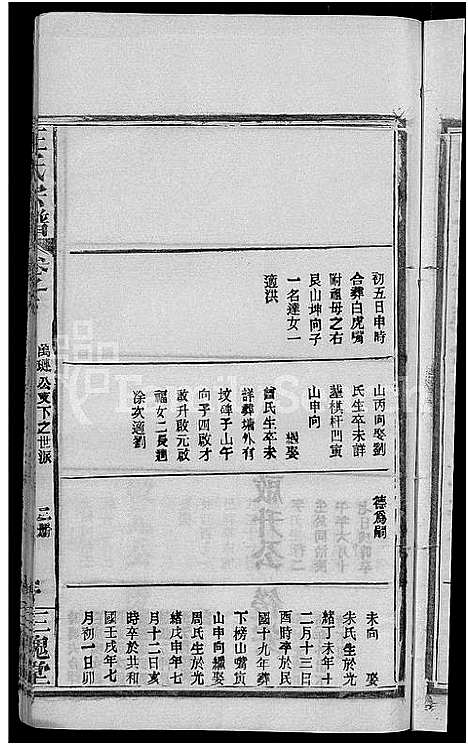 初五日申時
合葬白虎嘴
附祖母之右
艮山坤向子
一名達女一
適洪
山丙向娶劉
氏生卒未詳
墓棋杆凹寅
山申向
繼娶
曾氏生卒未
詳葬塘外有
坟碑子山午
向子四啟才
啟升啟元啟
福女二長適
涂次適劉
德為嗣
未向　娶
朱氏生於光
緒丁未年十
二月十三日
酉時卒於民
國十九年葬
下榜山嘴寅
山申向繼娶
周氏生於光
緒戊申年七
月十二日亥
時卒於共和
國壬戌年七
月初一日卯
王氏宗譜
萬璉公支下之世派
三槐堂